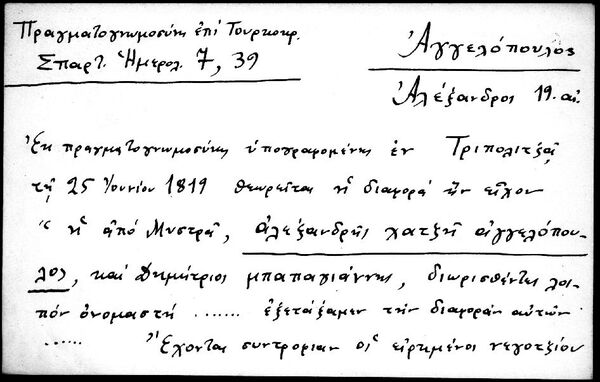 Πραγματογνωμοσύνη ἐπί Τουρκοκρ.
Σπαρτ. Ἡμερολ. 7, 39
Ἀγγελόπουλος
Ἀλέξανδρος 19. αἰ.
Ἐκ πραγματογνωμοσύνης ὑπογραφομένης ἐν Τριπολιτζᾷ
τῇ 25 Ἰουνίου 1819 θεωρεῖται ἡ διαφορά ἥν εἶχον
"ἡ ἀπό Μυστρᾶ, ἀλεξανδρῆς χατζῆ ἀγγελόπου-
λος, καί Δημήτριος μπαπαγιάννης, διωρισθέντες λοι-
πόν ὀνομαστή ....... ἐξετάξαμεν τήν διαφοράν αὐτῶν
...... Ἔχοντας συντροφίαν οἱ εἰρημένοι νεγοτζίου